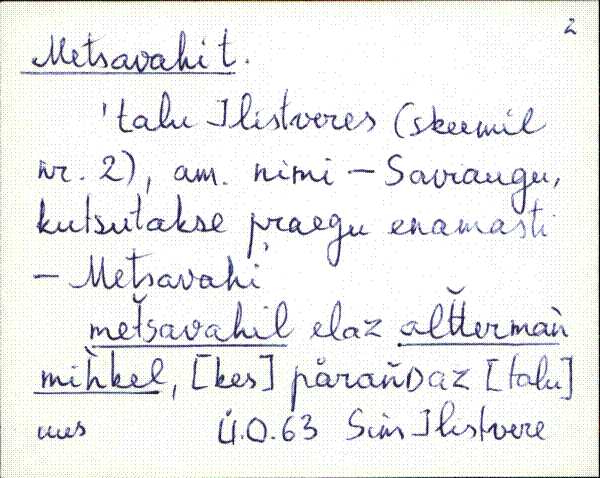 2
Metsavahi t.
'talu Ilistveres (skeemil
nr. 2), am. nimi – Saviaugu,
kutsutakse praegu enamasti
– Metsavahi
met̆savahil elaz alt̆t̆erman̆
mih̆kel, [kes] pàran̆Daz [talu]
uus Ü.O.63 Sim Ilistvere